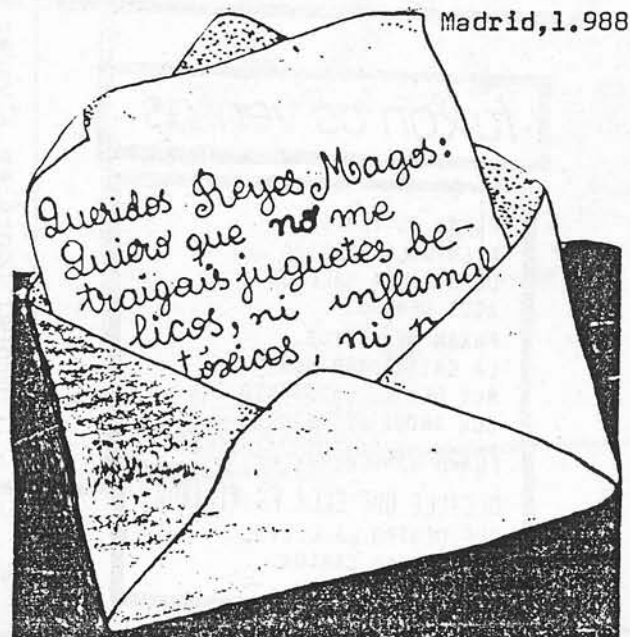 Madrid,1.988
Queridos Reyes Magos:
Quiero que no me
traigais juguetes be-
licos, ni inflamal
tóxicos, ni p